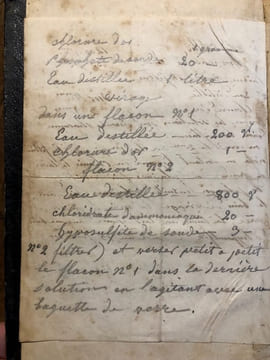 chlorure d'or 1 gram
de soude 20 -
Eau distiller 1 litre
virage
dans une flacon n°1
Eau destillée 200 gr
chlorure d'or 1 -
flacon n° 2
Eau destillée 800 gr
chloridrate d'ammoniaque 20 -
hyposulfite de soude - 3 -
n°2 filtrer) et verser petit a petit
le flacon n°1 dans la dernière
solution en l'agitant avec une
baguette de verre.